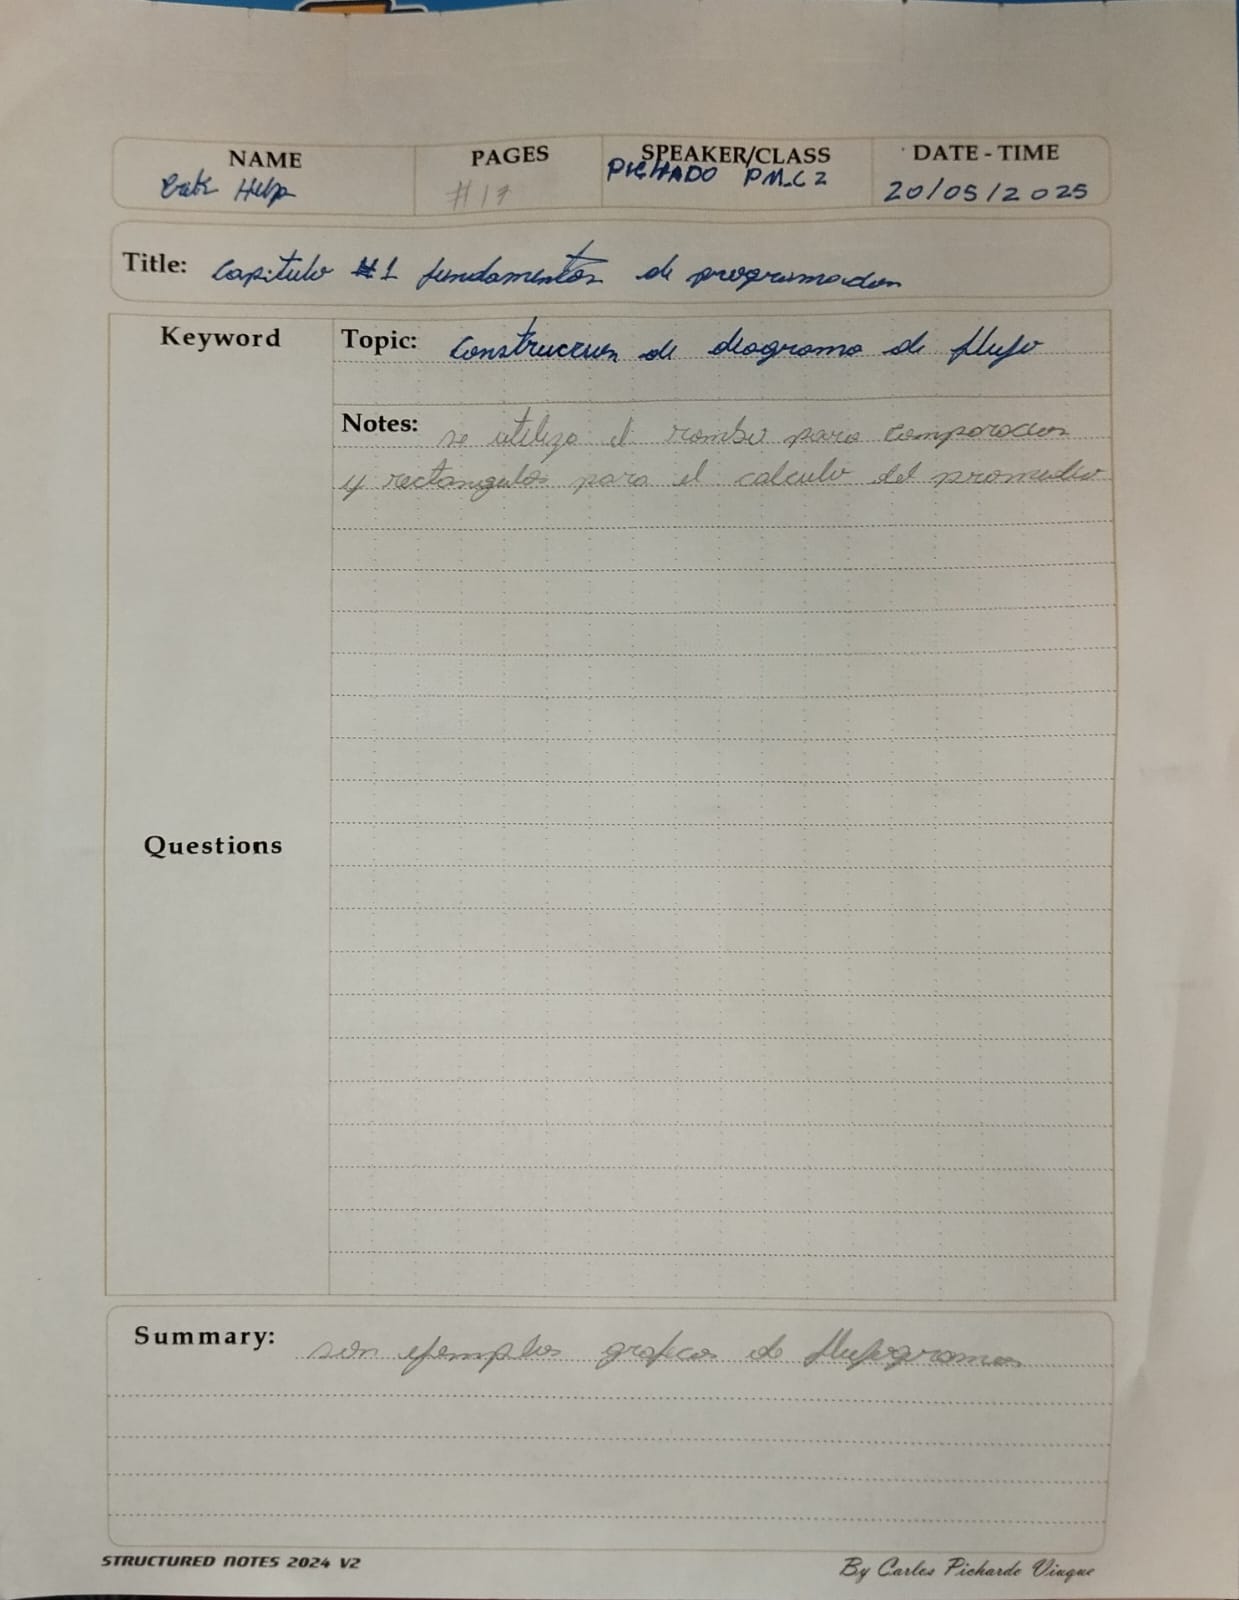 NAME
PAGES
SPEAKER/CLASS
DATE - TIME
Help
#17
PICHADO PM.C2
20/05/2025
Title: Capitulo #1 fundamentos de programacion
Keyword
Topic: Construccion de diagrama de flujo
Notes: se utiliza el rombo para comparacion
y rectangulos para el calculo del promedio
Questions
Summary: son ejemplos graficos de flujogramas
STRUCTURED NOTES 2024 V2
By Carlos Pichardo Viuque